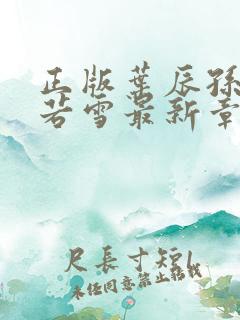 正版葉辰孫
若雪最新章
尺長寸短l
未經同意禁止轉載